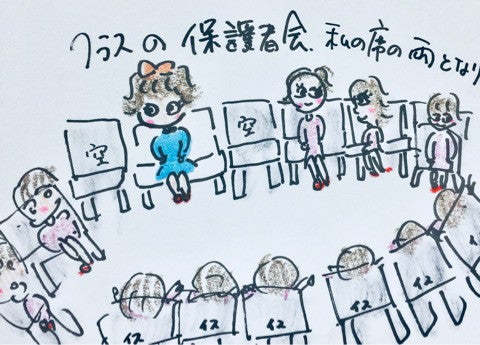 クラスの保護者会.私の席の両となり
空
空
イス
イス
イス
イス
イス